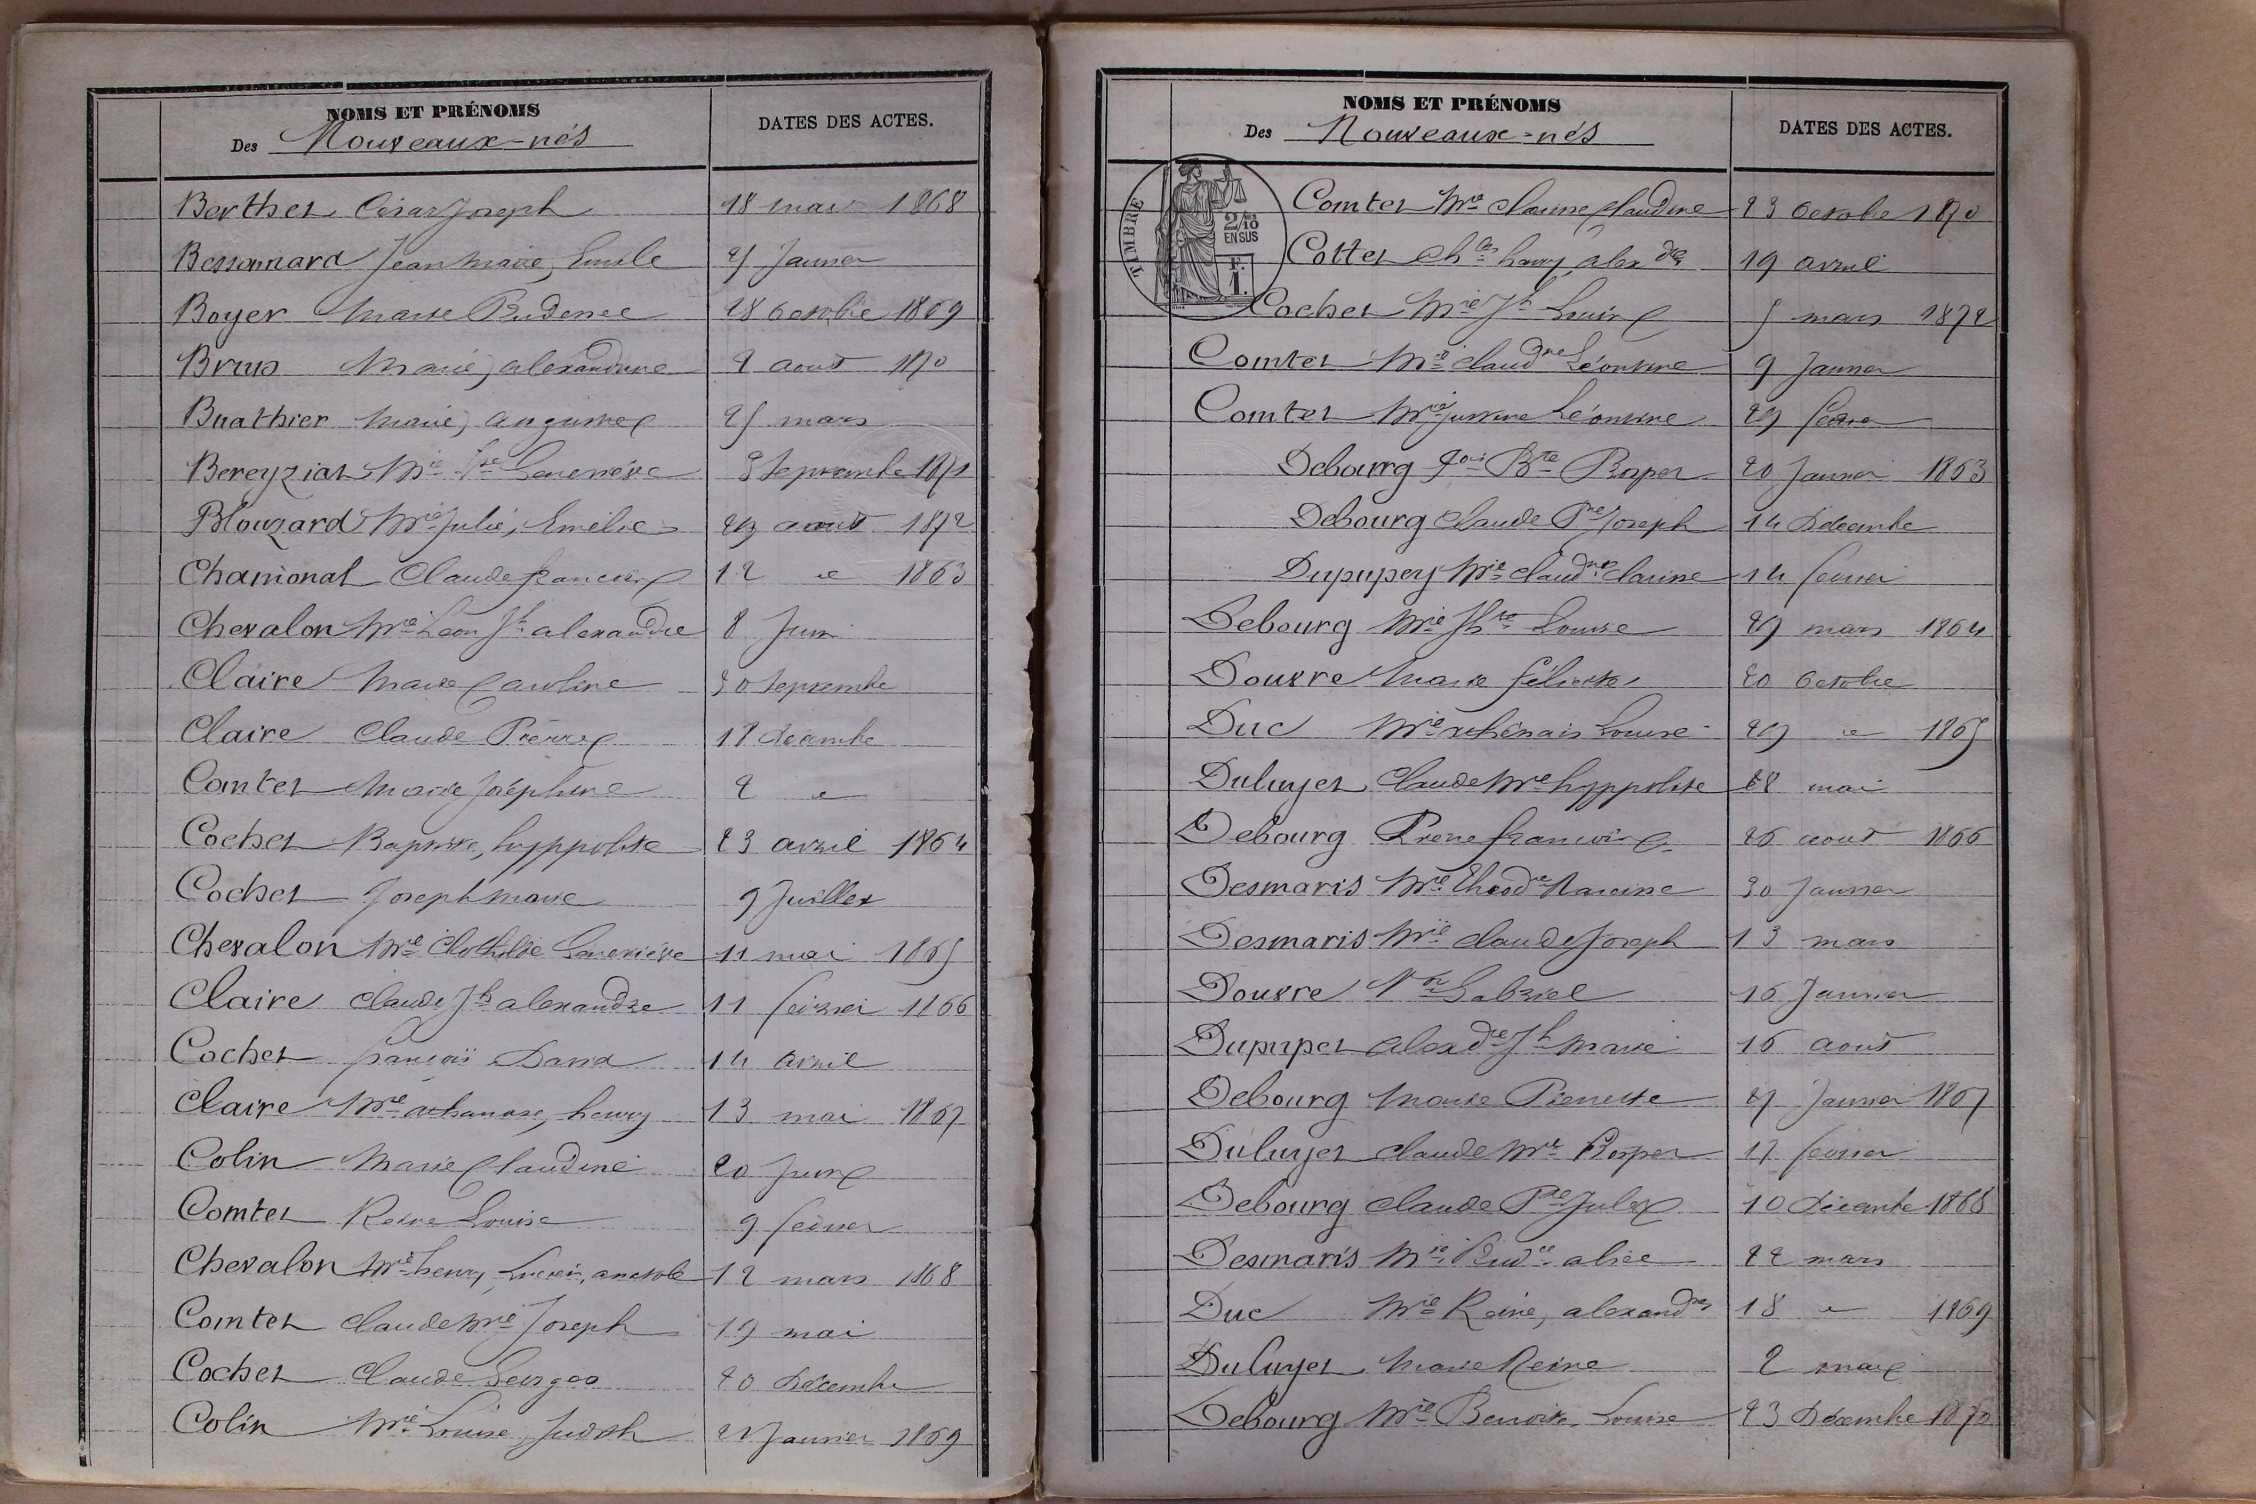 NOMS ET PRÉNOMS
DATES DES ACTES.
Des Nouveaux-nés
Berthet César Joseph 18 mars 1868
Bessonnard Jean Marie, Emile 25 Janvier
Boyer Marie Prudence 28 Octobre 1869
Brun Marie, alexandrine 2 aout 1870
Buathier Marie, augustine 25 mars
Bereyziat Mie Genevieve Septembre 1871
Blouzard Mie Julie, Emélie 29 aout 1872
Chamonal Claude francois 12 1863
Chevalon Mie Léon Jh alexandre 8 Juin
Claire Marie Caroline 30 Septembre
Claire Claude Pierre 18 décembre
Comtet Marie Joséphine 2
Cochet Baptiste, hyppolite 23 avril 1864
Cochet Joseph Marie 9 Juillet
Chevalon Mie Clothilde Genevieve 11 mai 1865
Claire Claude Jh alexandre 11 fevrier 1866
Cochet francois David 14 avril
Claire Mie athanase, henry 13 mai 1867
Colin Marie Claudine 20 Juin
Comtet Reine Louise 9 fevrier
Chevalon Mie henry, Lucien, anatole 12 mars 1868
Comtet Claude Mie Joseph 19 mai
Cochet Claude Georges 20 décembre
Colin Mie Louise, Judith 21 Janvier 1869
NOMS ET PRÉNOMS
DATES DES ACTES.
Des Nouveaux-nés
TIMBRE
2/10
EN SUS
F.
1.
Comtet Mie Claudine 23 Octobre 1870
Cottet Chles henry, alexdre 19 avril
Cochet Mie Jh Louise 5 mars 1872
Comtet Mie Claudne Léontine 9 Janvier
Comtet Mie Justine Léontine 29 fevrier
Debourg fois Bte Prosper 20 Janvier 1863
Debourg Claude Pre Joseph 14 Décembre
Dupupey Mie Claudne Clarisse 14 fevrier
Debourg Mie Louise 29 mars 1864
Douvre Marie félicité 20 Octobre
Duc Mie athénais Louise 29 1865
Duluyet Claude Mie hyppolite 28 mai
Debourg Pierre francois 26 aout 1866
Desmaris Mie Théodre Narcisse 30 Janvier
Desmaris Mie Claude Joseph 13 mars
Douvre Gabriel 16 Janvier
Dupupet Alexdre Jh Marie 16 aout
Debourg Marie Pierrette 27 Janvier 1867
Duluyet Claude Mie Prosper 17 fevrier
Debourg Claude Pre Jules 10 décembre 1868
Desmaris Mie Prudce alice 22 mars
Duc Mie Reine, alexandne 18 1869
Duluyet Marie Reine 2 mai
Debourg Mie Benoite Louise 23 Décembre 1870